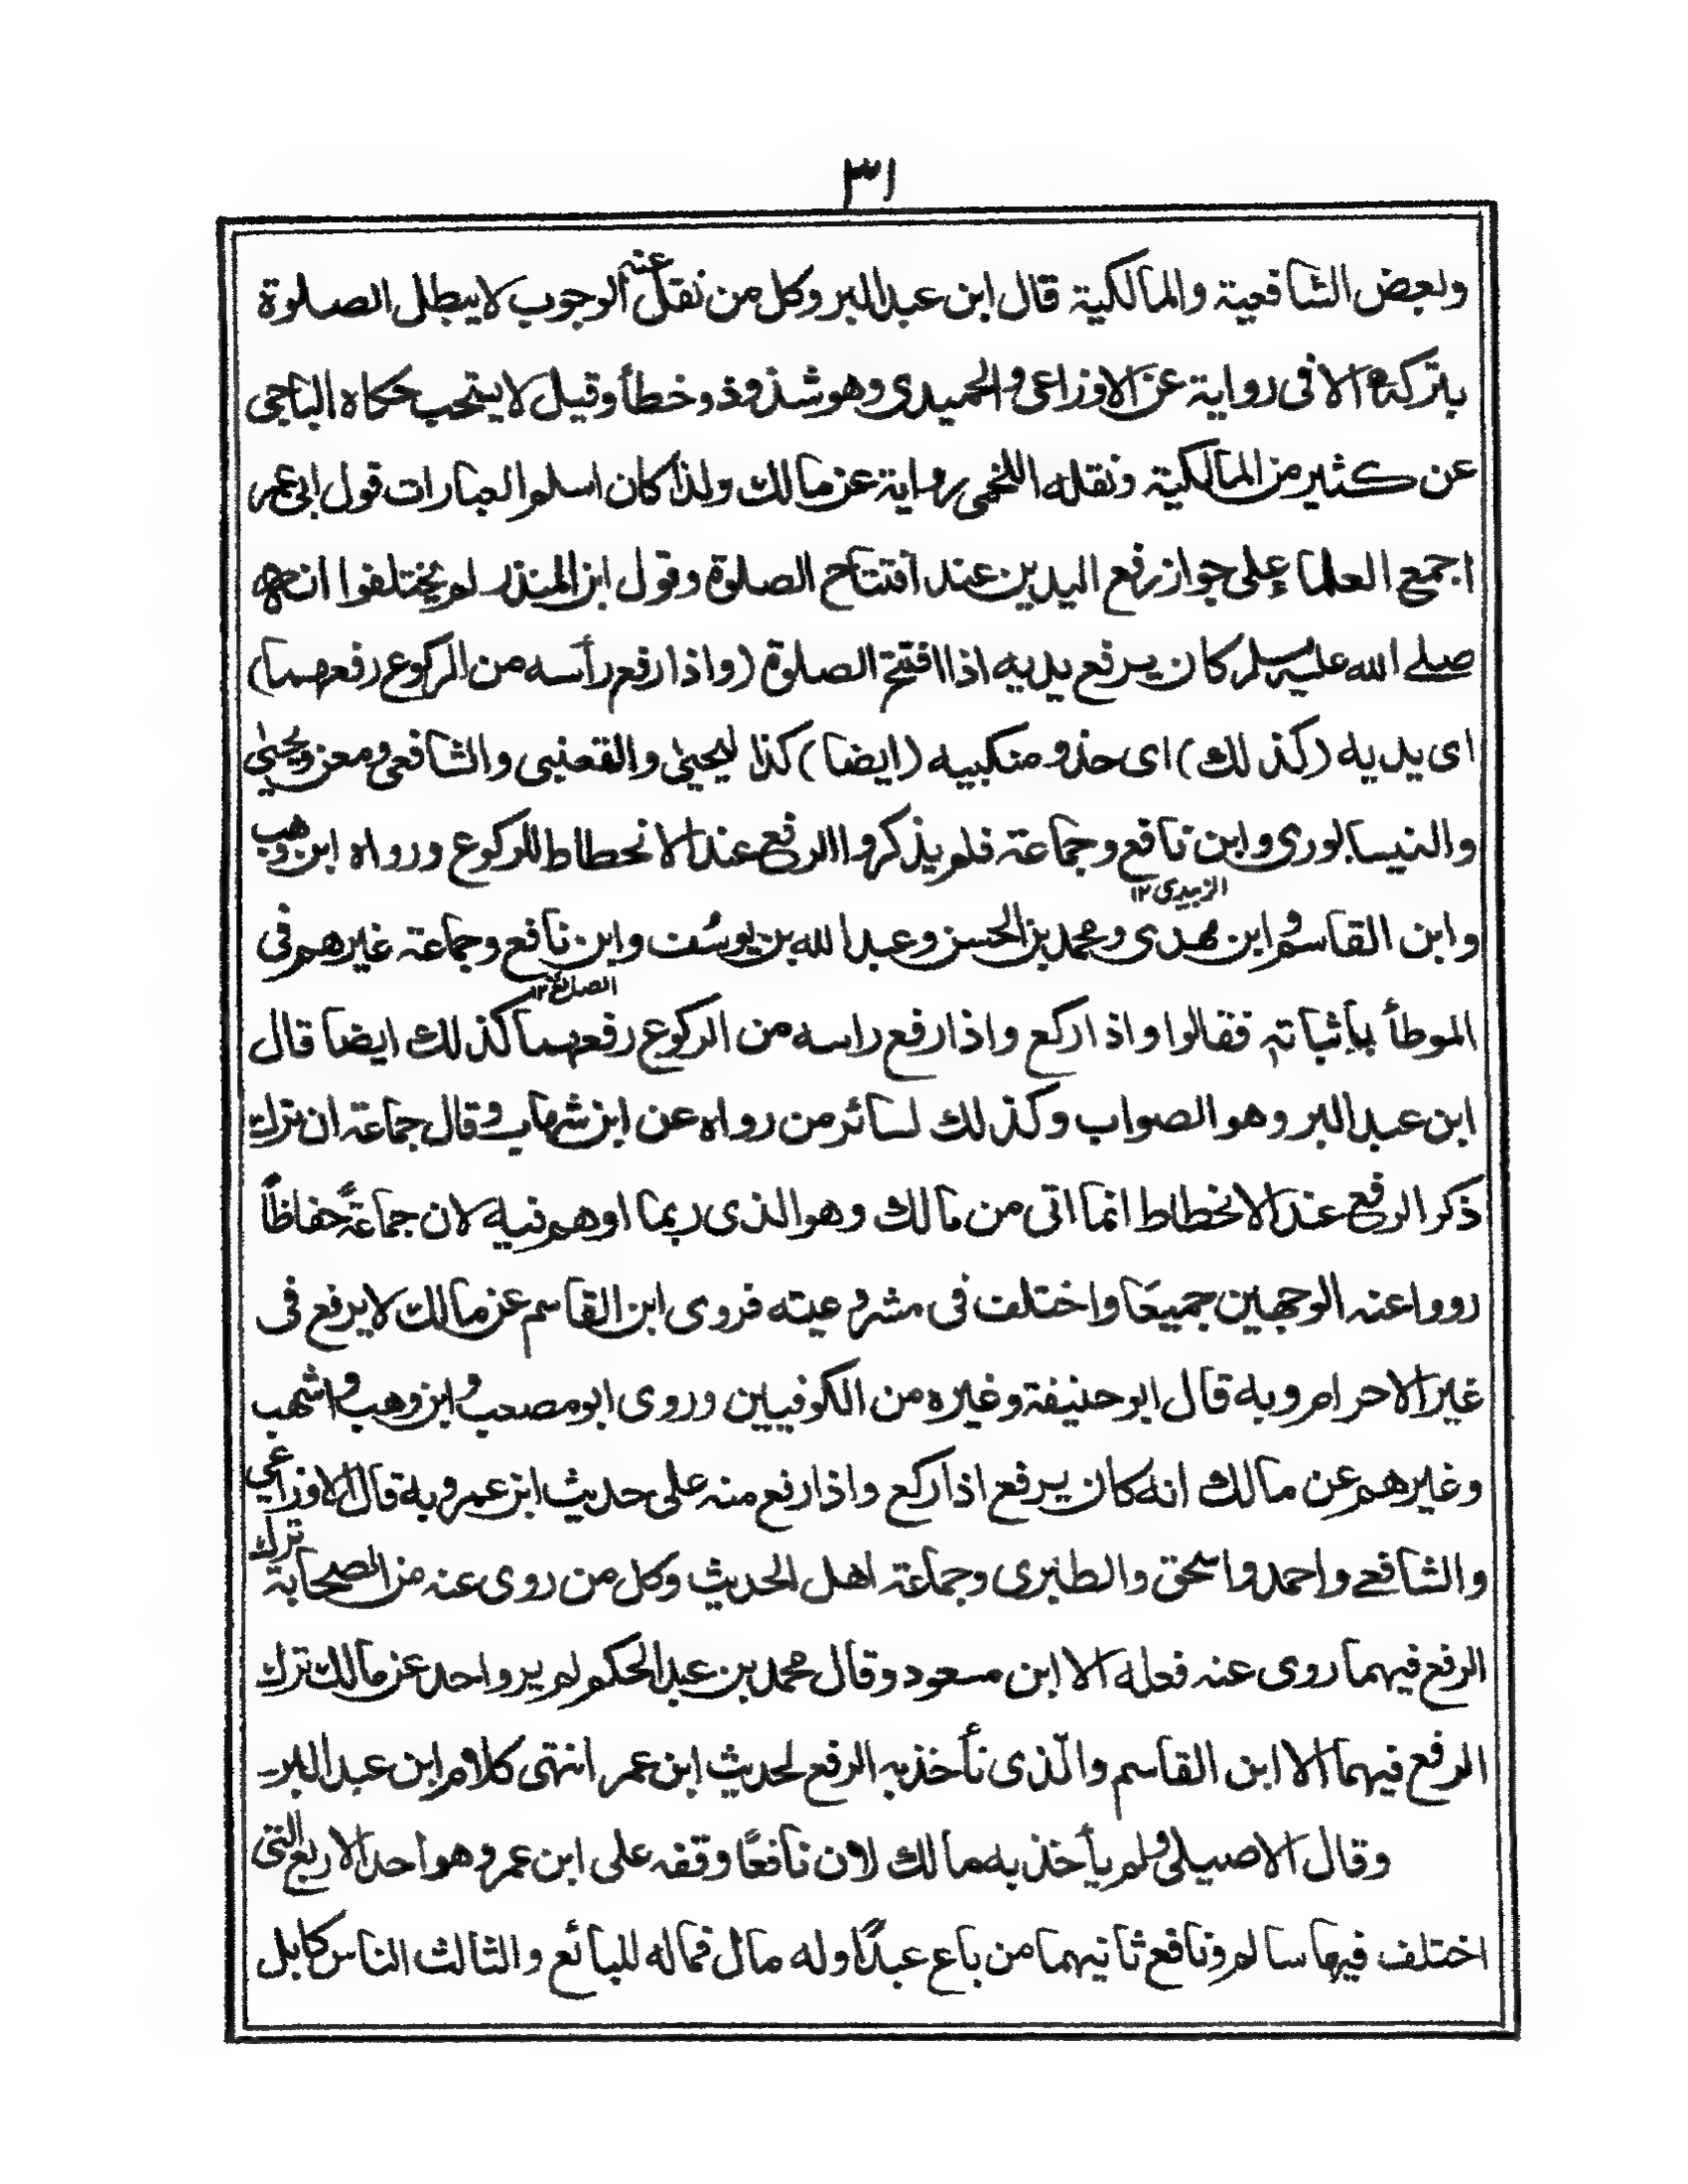 ٣١
وبعض الشافعية والمالكية قال ابن عبد البر وكل من نقل عنه الوجوب لا يبطل الصلوة
بتركه الا فى رواية عن الاوزاعى والحميدى وهو شذوذ وخطأ وقيل لا يستحب حكاه الباجى
عن كثير من المالكية ونقله اللخمى رواية عن مالك ولذا كان اسلم العبارات قول ابى عمر
اجمع العلماء على جواز رفع اليدين عند افتتاح الصلوة وقول ابن المنذر لم يختلفوا انه
صلے الله عليه وسلم كان يرفع يديه اذا افتتح الصلوة (واذا رفع رأسه من الركوع رفعهما)
اى يديه (كذلك) اى حذو منكبيه (ايضا) كذا ليحيى والقعنبى والشافعى ومعن ويحيى
والنيسابورى وابن نافع وجماعة فلم يذكروا الرفع عند الانحطاط للركوع ورواه ابن وهب
الزبيدى ١٢
وابن القاسم وابن مهدى ومحمد بن الحسن وعبد الله بن يوسف وابن نافع وجماعة غيرهم فى
الصائغ ١٢
الموطأ باثباته فقالوا واذا ركع واذا رفع راسه من الركوع رفعهما كذلك ايضا قال
ابن عبد البر وهو الصواب وكذلك لسائر من رواه عن ابن شهاب وقال جماعة ان ترك
ذكر الرفع عند الانحطاط انما اتى من مالك وهو الذى ربما اوهم فيه لان جماعةً حفاظاً
رووا عنه الوجهين جميعًا واختلف فى مشروعيته فروى ابن القاسم عن مالك لا يرفع فى
غير الاحرام وبه قال ابو حنيفة وغيره من الكوفيين وروى ابو مصعب وابن وهب واشهب
وغيرهم عن مالك انه كان يرفع اذا ركع واذا رفع منه على حديث ابن عمر وبه قال الاوزاعي
والشافعے واحمد واسحق والطبرى وجماعة اهل الحديث وكل من روى عنه من الصحابة ترك
الرفع فيهما روى عنه فعله الا ابن مسعود وقال محمد بن عبد الحكم لم يرو احد عن مالك ترك
الرفع فيهما الا ابن القاسم والّذى نأخذ به الرفع لحديث ابن عمر انتهى كلام ابن عبد البر
وقال الاصيلى ولم يأخذ به مالك لان نافعًا وقفه على ابن عمر وهو احد الاربع التى
اختلف فيها سالم ونافع ثانيهما من باع عبدًا وله مال فماله للبائع والثالث الناس كابل